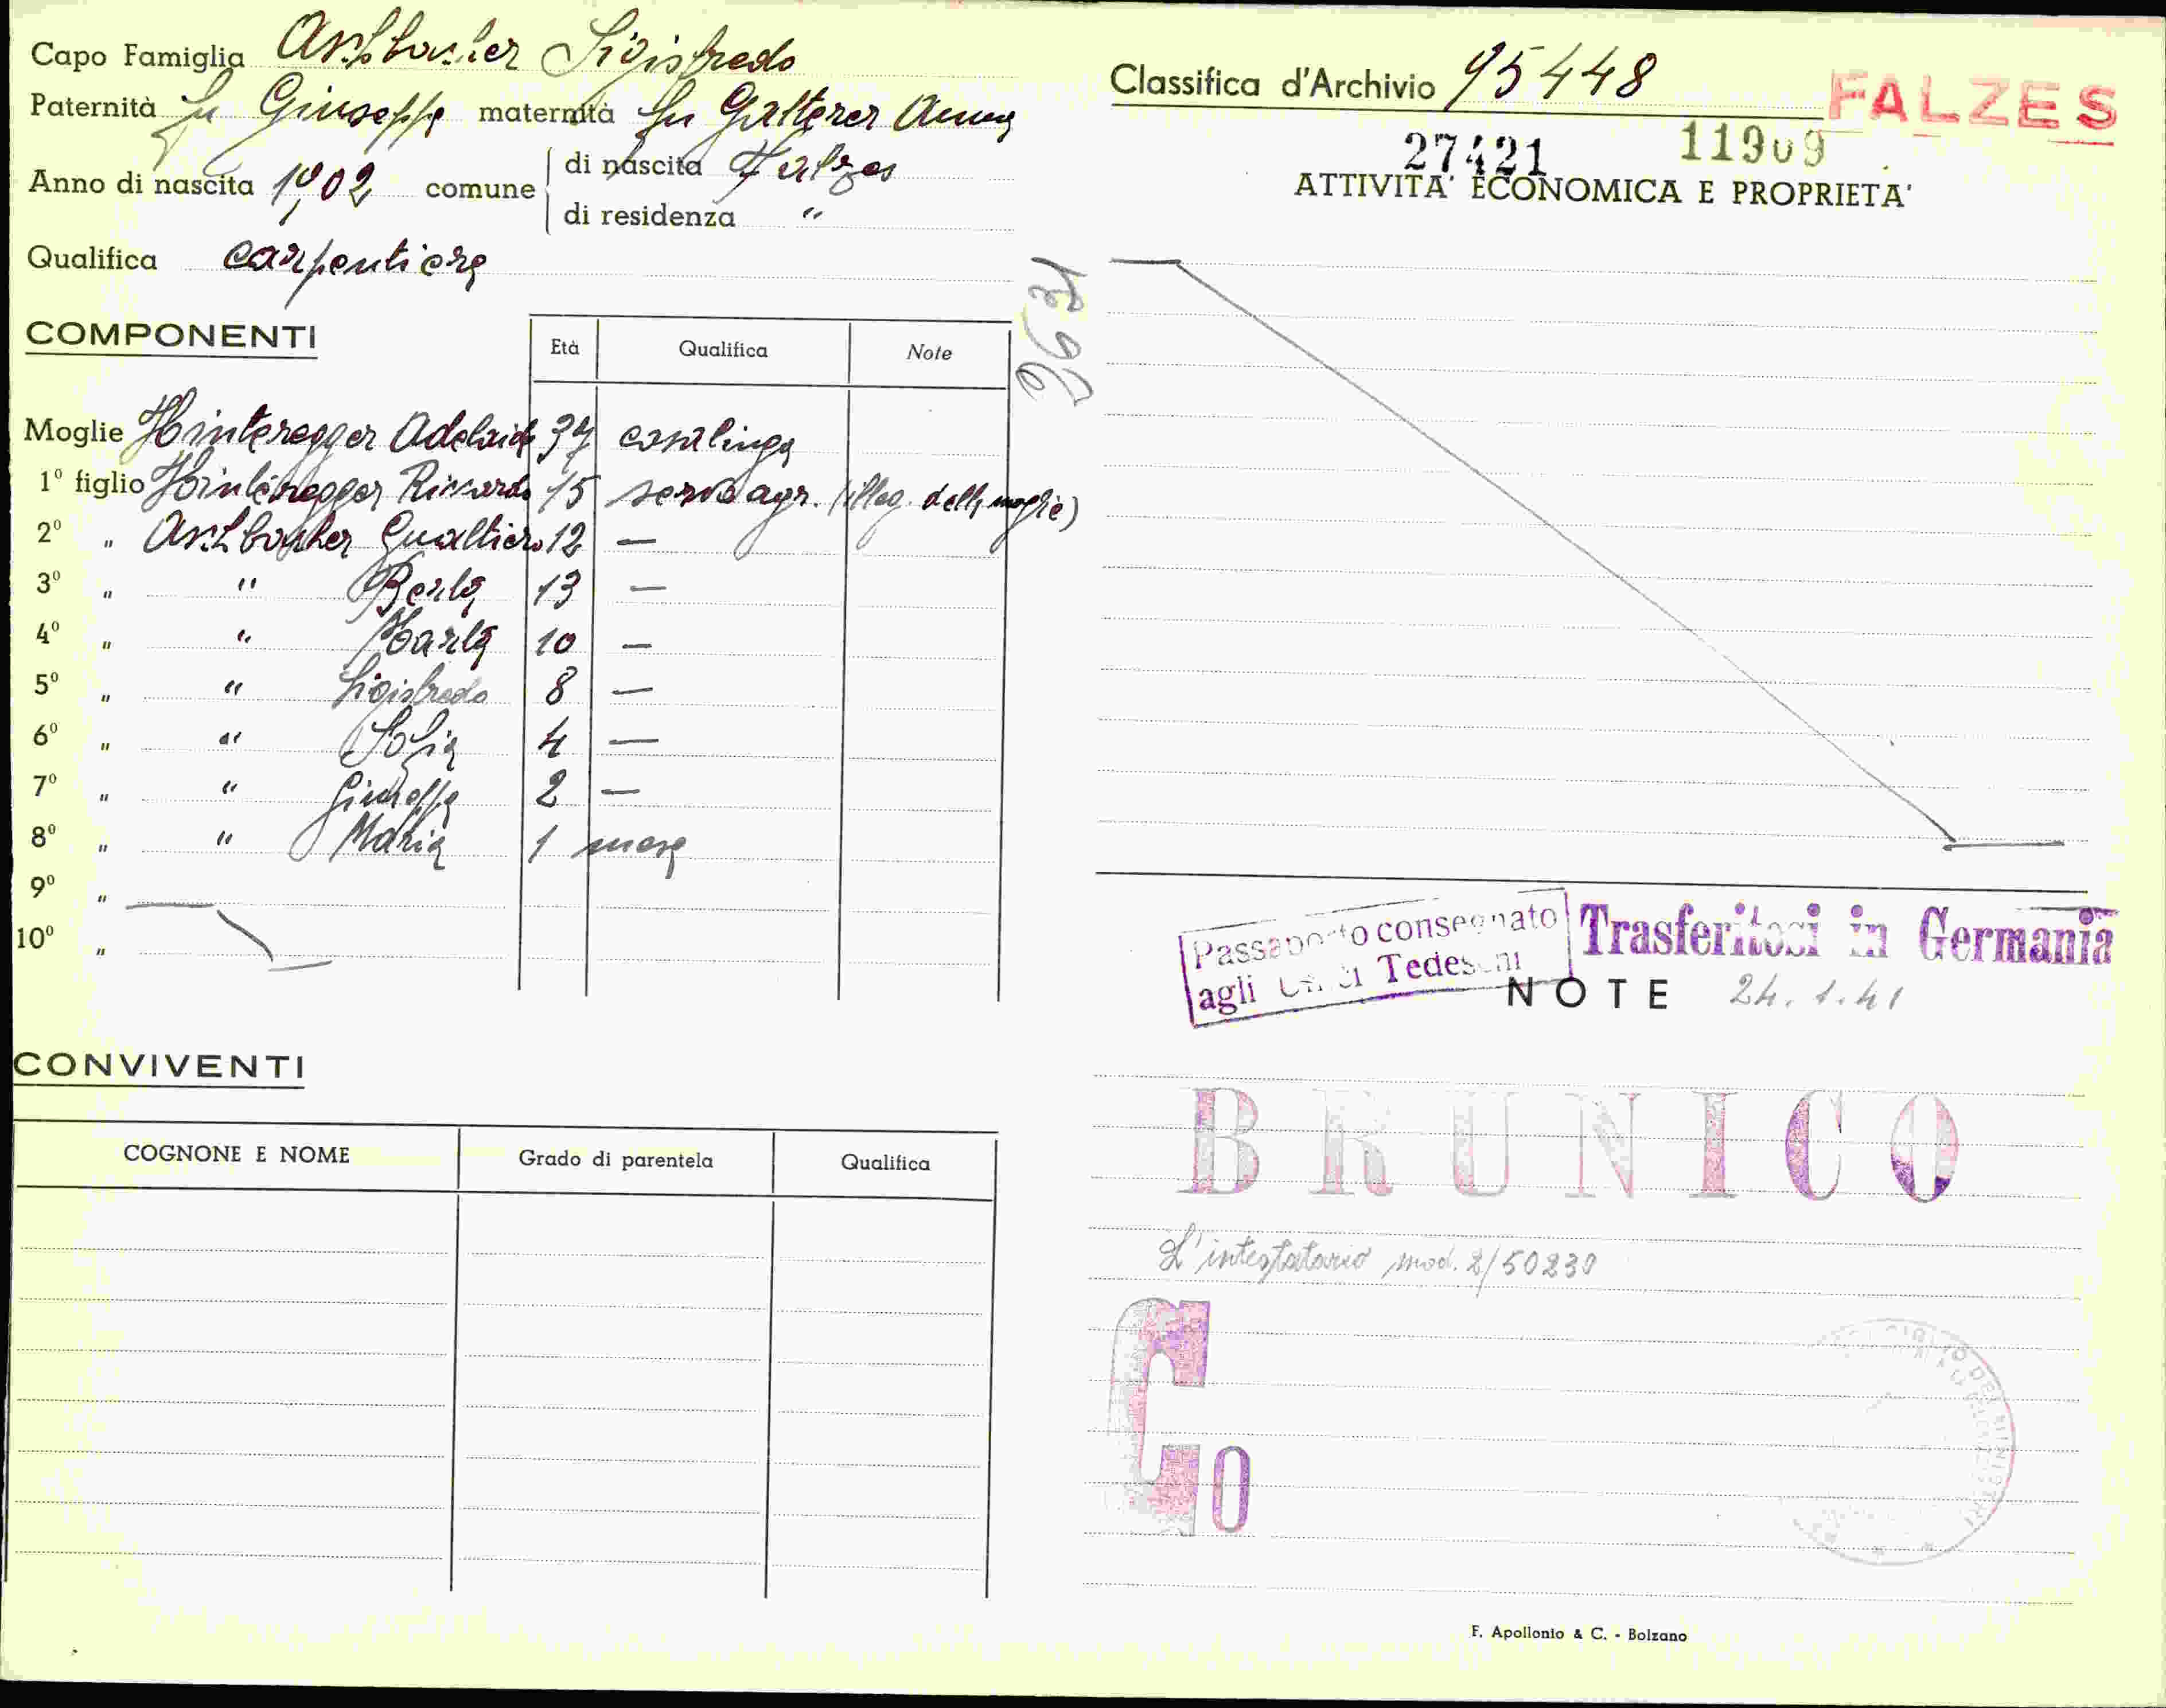 Capo Famiglia Aschbacher Sigisfredo
Paternità fu Giuseppe maternità fu Gatterer Anna
Anno di nascita 1902 comune di nascita Falzes
di residenza "
Qualifica carpentiere
COMPONENTI
Età Qualifica Note
Moglie Hinteregger Adelaide 37 casalinga
1° figlio Hinteregger Riccardo 15 servo agr. (illeg. della moglie)
2° " Aschbacher Gualtiero 12 —
3° " " Berta 13 —
4° " " 10 —
5° " " Sigisfredo 8 —
6° " " Sofia 4 —
7° " " 2 —
8° " " Maria 1 mese
9° "
10° "
CONVIVENTI
COGNONE E NOME Grado di parentela Qualifica
Classifica d'Archivio 95448
FALZES
27421 11909
ATTIVITA' ECONOMICA E PROPRIETA'
Passaporto consegnato
agli Uffici Tedeschi
Trasferitosi in Germania
NOTE 24.1.41
BRUNICO
L'intestatario mod. 2/50230
G0
F. Apollonio & C. - Bolzano